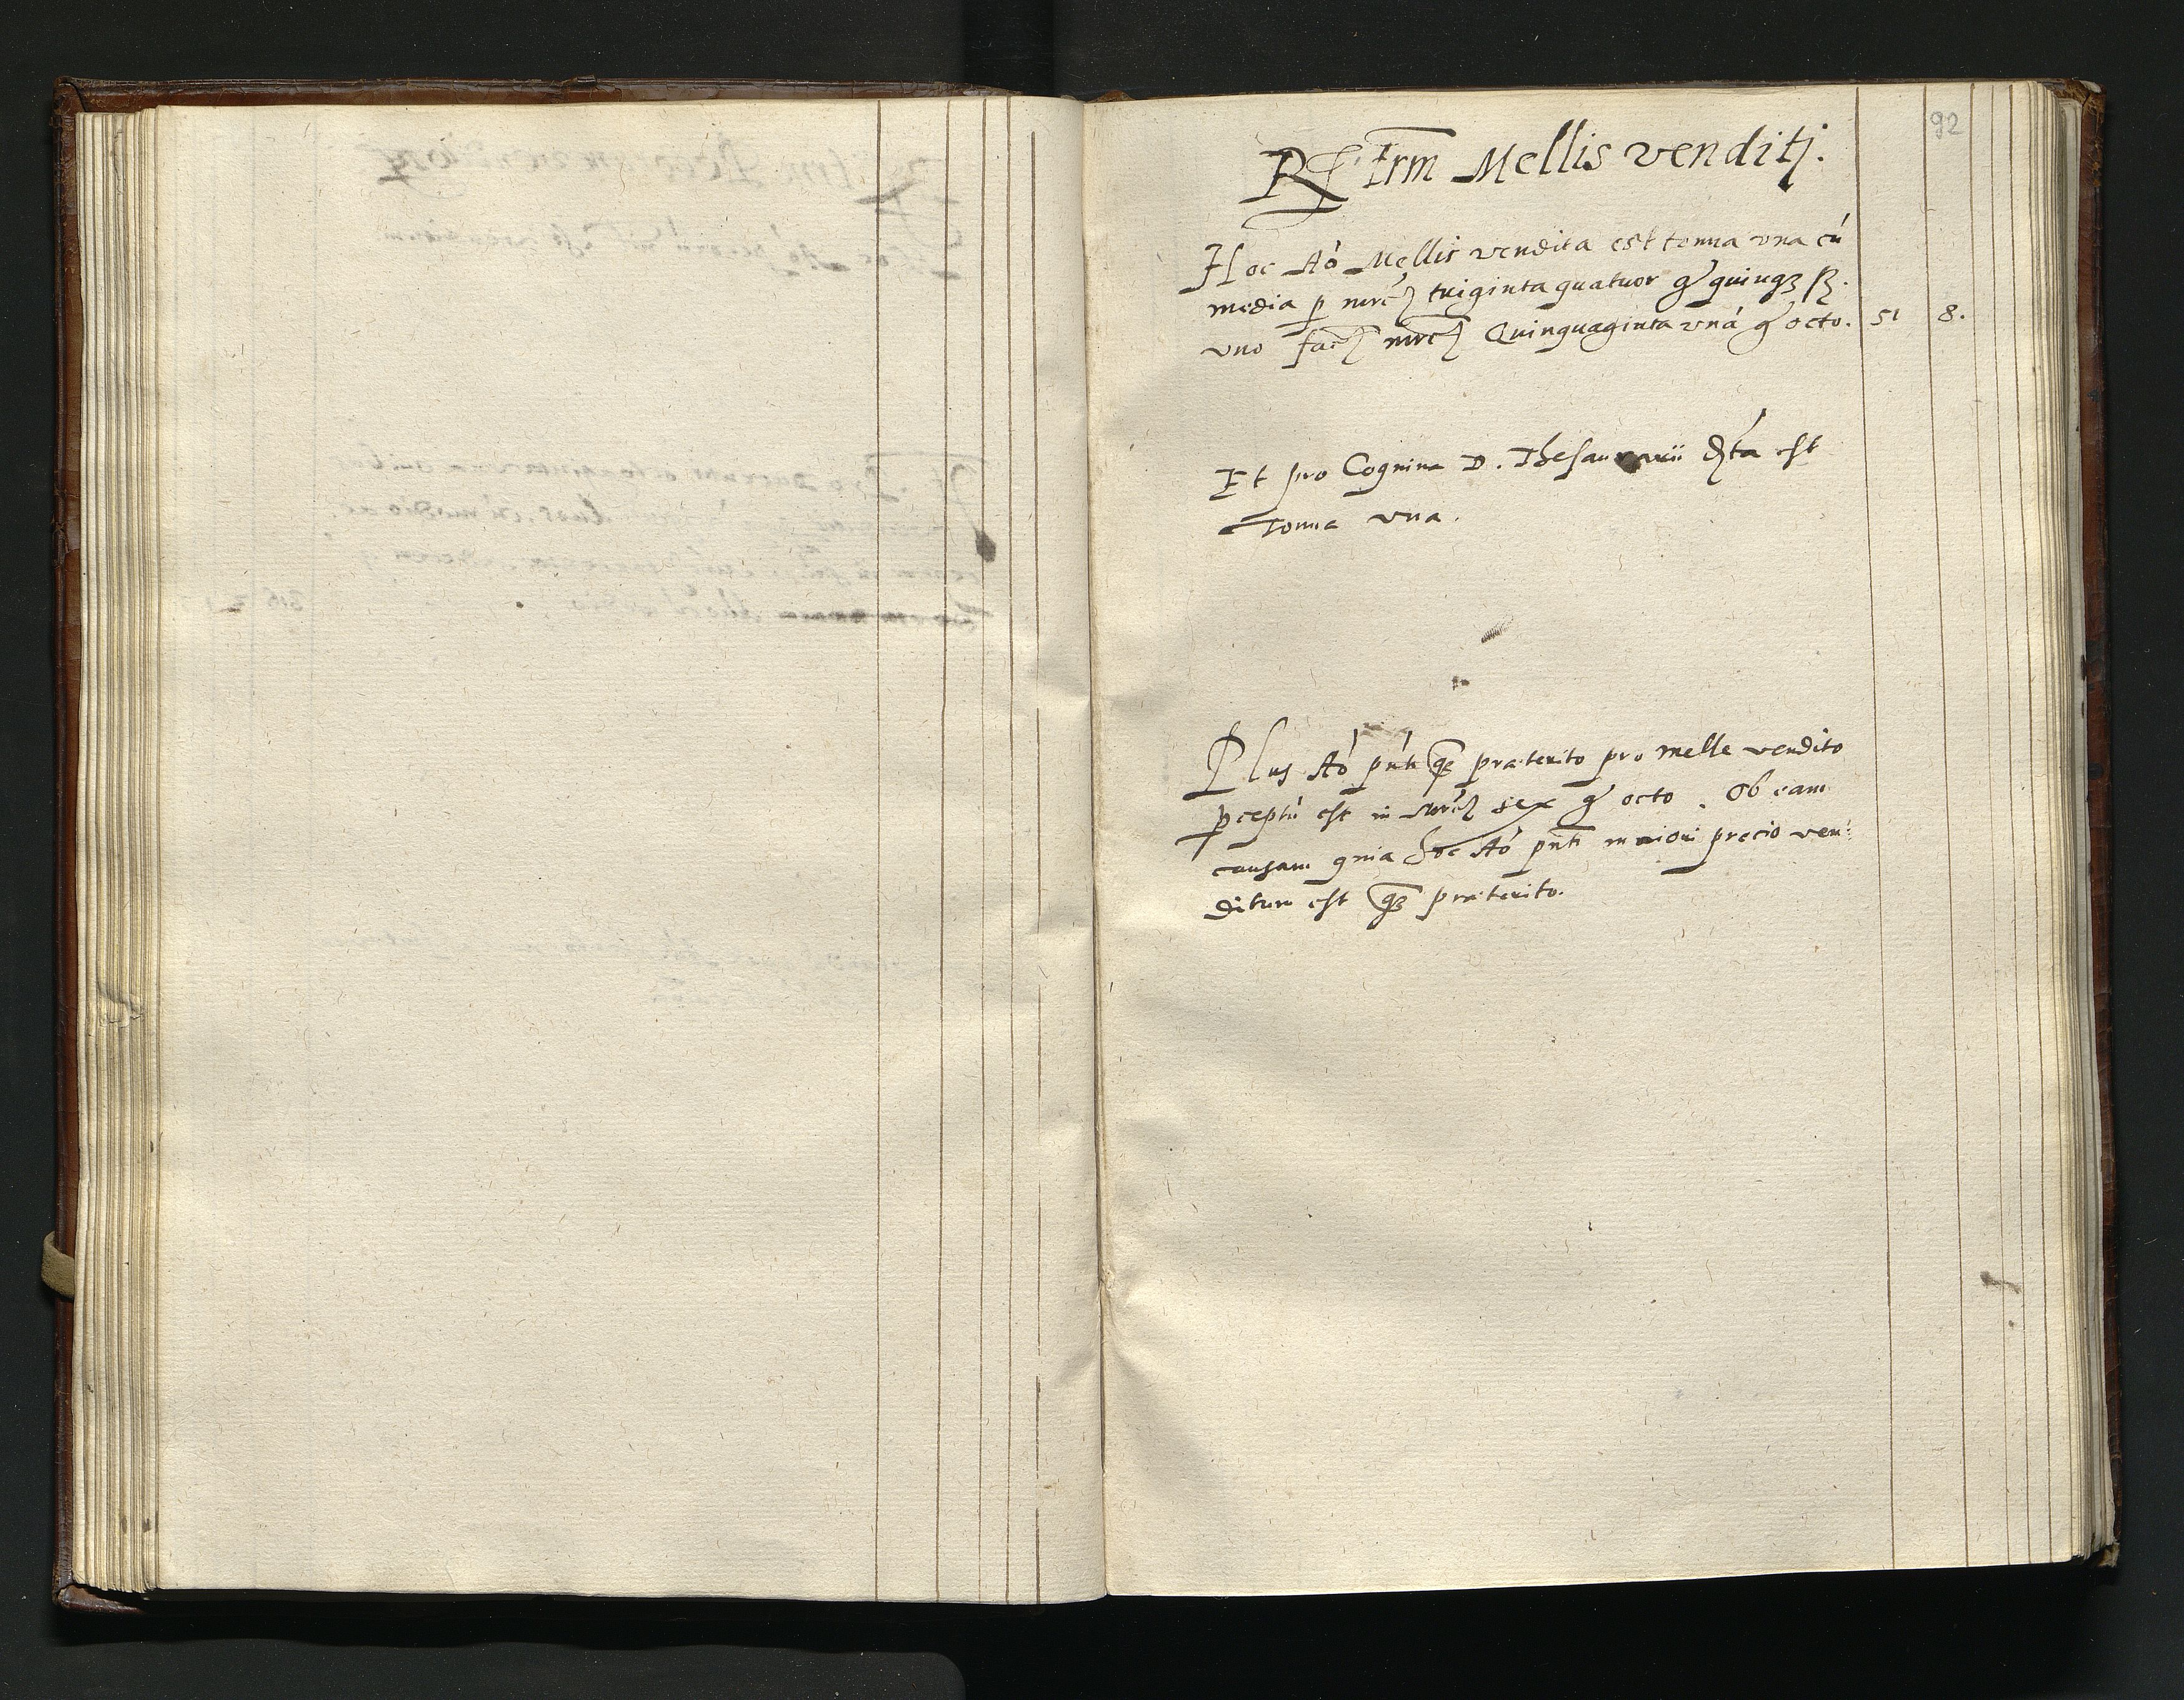 92
Rs Irm Mellis venditj.
Hoc Aō Mellis vendita est tonna vna cū
media p mrc triginta quatuor gr quinqz ss.
vno fac mrc Quinquaginta vná gr octo. 51 8.
Et pro Coquina D. Thesaurarii dta est
tonna vna.
Plus Aō pnti qz præterito pro melle vendito
pceptū est in mrc sex gr octo. Ob eam
causam quia hoc Aō pnti maiori precio ven:
ditum est qz præterito.